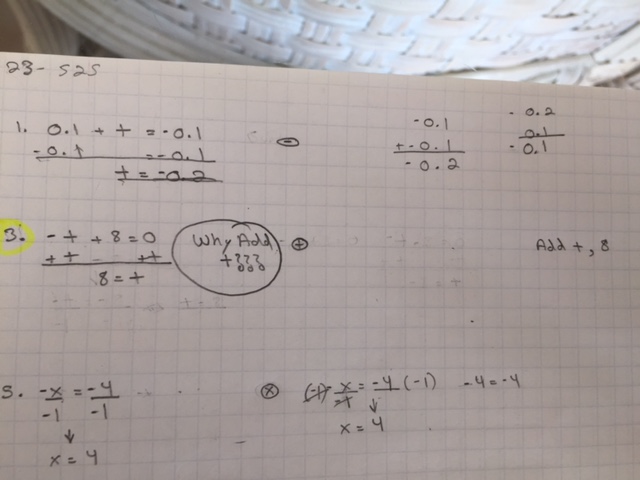 P3-525
1. 0.1 + t = -0.1
-0.1 = -0.1
t = -0.2
-0.1
+ -0.1
-0.2
-0.2
0.1
-0.1
3. -t + 8 = 0
+t +t
8 = t
Why Add
t???
Add t, 8
5. -x = -4
-1 -1
x = 4
(-1) x = -4 (-1)
-1
x = 4
-4 = -4